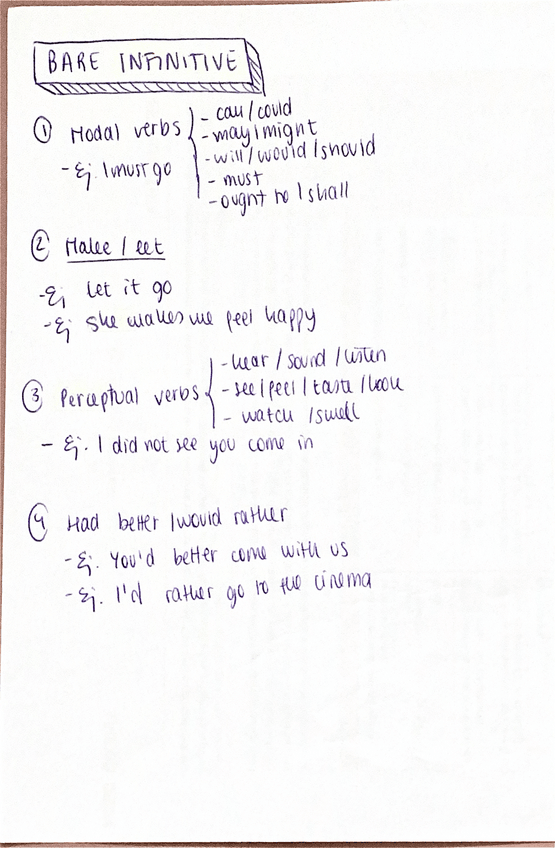 BARE INFINITIVE
① Modal verbs
- can/could
- may/might
- will/would/should
- must
- ought to / shall
- Ej. I must go
② Make / let
- Ej let it go
- Ej she makes me feel happy
③ Perceptual verbs
- hear / sound / listen
- see / feel / taste / look
- watch / smell
- Ej. I did not see you come in
④ Had better / would rather
- Ej. You'd better come with us
- Ej. I'd rather go to the cinema